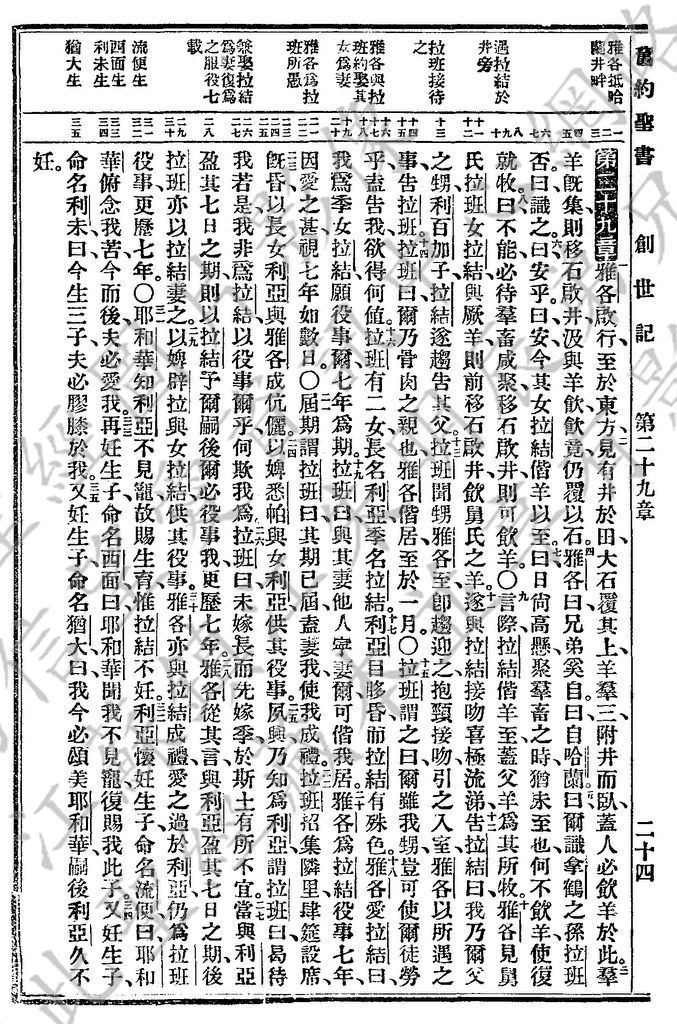 舊約聖書 創世記 第二十九章 二十四
雅各抵哈
蘭井畔
遇拉結於
井旁
拉班接待
之
雅各與拉
班約娶其
女為妻
雅各為拉
班所愚
兼娶拉結
為妻復為
之服役七
載
流便生
西面生
利未生
猶大生
第二十九章雅各啟行至於東方見有井於田大石覆其上羊羣三附井而臥蓋人必飲羊於此羣
羊旣集則移石啟井汲與羊飲飲竟仍覆以石雅各曰兄弟奚自曰自哈蘭曰爾識拿鶴之孫拉班
否曰識之曰安乎曰安今其女拉結偕羊以至曰日尙高懸聚羣畜之時猶未至也何不飲羊使復
就牧曰不能必待羣畜咸聚移石啟井則可飲羊〇言際拉結偕羊至蓋父羊爲其所牧雅各見舅
氏拉班女拉結與厥羊則前移石啟井飲舅氏之羊遂與拉結接吻喜極流涕告拉結曰我乃爾父
之甥利百加子拉結遂趨告其父拉班聞甥雅各至卽趨迎之抱頸接吻引之入室雅各以所遇之
事告拉班拉班曰爾乃骨肉之親也雅各偕居至於一月〇拉班謂之曰爾雖我甥豈可使爾徒勞
乎盍告我欲得何値拉班有二女長名利亞季名拉結利亞目眵昏而拉結有殊色雅各愛拉結曰
我爲季女拉結願役事爾七年爲期拉班曰與其妻他人寧妻爾可偕我居雅各爲拉結役事七年
因愛之甚視七年如數日〇屆期謂拉班曰其期已屆盍妻我使我成禮拉班招集隣里肆筵設席
旣昏以長女利亞與雅各成伉儷以婢悉帕與女利亞供其役事夙興乃知爲利亞謂拉班曰曷待
我若是我非爲拉結以役事爾乎何欺我爲拉班曰未嫁長而先嫁季於斯土有所不宜當與利亞
盈其七日之期則以拉結予爾嗣後爾必役事我更歷七年雅各從其言與利亞盈其七日之期後
拉班亦以拉結妻之以婢辟拉與女拉結供其役事雅各亦與拉結成禮愛之過於利亞仍爲拉班
役事更歷七年〇耶和華知利亞不見寵故賜生育惟拉結不妊利亞懷妊生子命名流便曰耶和
華俯念我苦今而後夫必愛我再妊生子命名西面曰耶和華聞我不見寵復賜我此子又妊生子
命名利未曰今生三子夫必膠膝於我又妊生子命名猶大曰我今必頌美耶和華嗣後利亞久不
妊